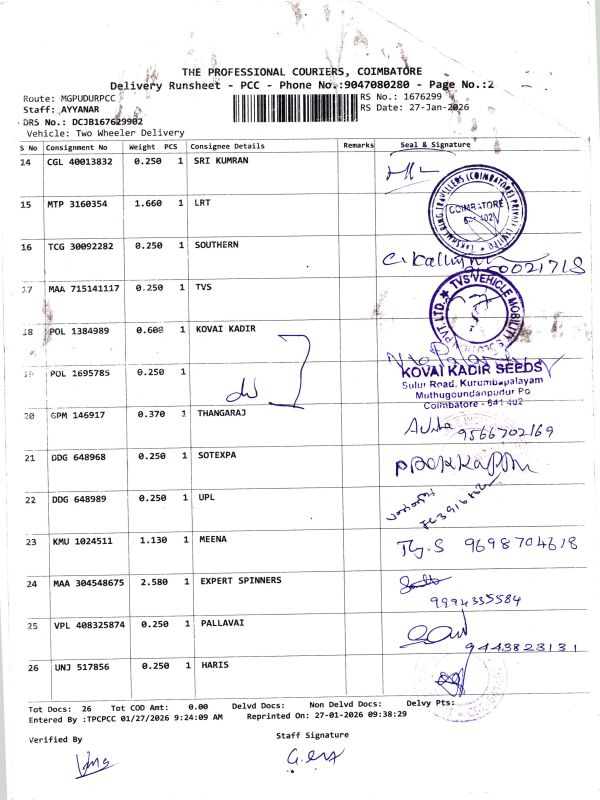 THE PROFESSIONAL COURIERS, COIMBATORE
Delivery Runsheet - PCC - Phone No.:9047080280 - Page No.:2
Route: MGPUDURPCC
RS No.: 1676299
Staff: AYYANAR
RS Date: 27-Jan-2026
DRS No.: DCJB167629902
Vehicle: Two Wheeler Delivery
S No Consignment No Weight PCS Consignee Details Remarks Seal & Signature
14 CGL 40013832 0.250 1 SRI KUMRAN
15 MTP 3160354 1.660 1 LRT
LAKSHMI RING TRAVELLERS (COIMBATORE) PRIVATE LIMITED
COIMBATORE
641 402
16 TCG 30092282 0.250 1 SOUTHERN
17 MAA 715141117 0.250 1 TVS
TVS VEHICLE MOBILITY
PVT. LTD.
18 POL 1384989 0.600 1 KOVAI KADIR
19 POL 1695785 0.250 1
KOVAI KADIR SEEDS
Sulur Road, Kurumbapalayam
Muthugoundanpudur Po
Coimbatore - 641 402
20 GPM 146917 0.370 1 THANGARAJ
9566702169
21 DDG 648968 0.250 1 SOTEXPA
22 DDG 648989 0.250 1 UPL
23 KMU 1024511 1.130 1 MEENA
9698704618
24 MAA 304548675 2.580 1 EXPERT SPINNERS
9994335584
25 VPL 408325874 0.250 1 PALLAVAI
9443823131
26 UNJ 517856 0.250 1 HARIS
Tot Docs: 26 Tot COD Amt: 0.00 Delvd Docs: Non Delvd Docs: Delvy Pts:
Entered By :TPCPCC 01/27/2026 9:24:09 AM Reprinted On: 27-01-2026 09:38:29
Verified By
Staff Signature